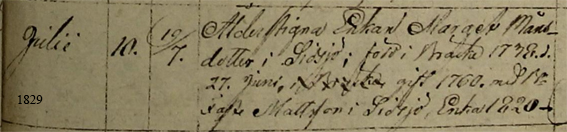 Julii 10. 10/7. Ålderstigna Enkan Marget Måns-
dotter i Sidsjö; född i Bracke 1738. d.
27. Juni, gift 1760. med
Mattsson i Sidsjö, Enka 1820-
1829